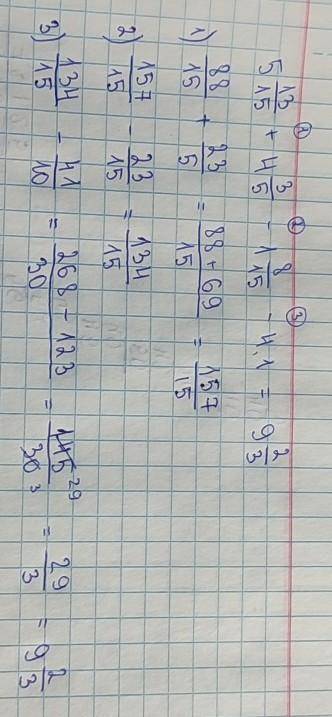 ① ② ③
5 13/15 + 4 3/5 - 1 8/15 - 4,1 = 9 2/3
1) 88/15 + 23/5 = 88 + 69/15 = 157/15
2) 157/15 - 23/15 = 134/15
3) 134/15 - 41/10 = 268 - 123/30 = 145 29/30 3 = 29/3 = 9 2/3